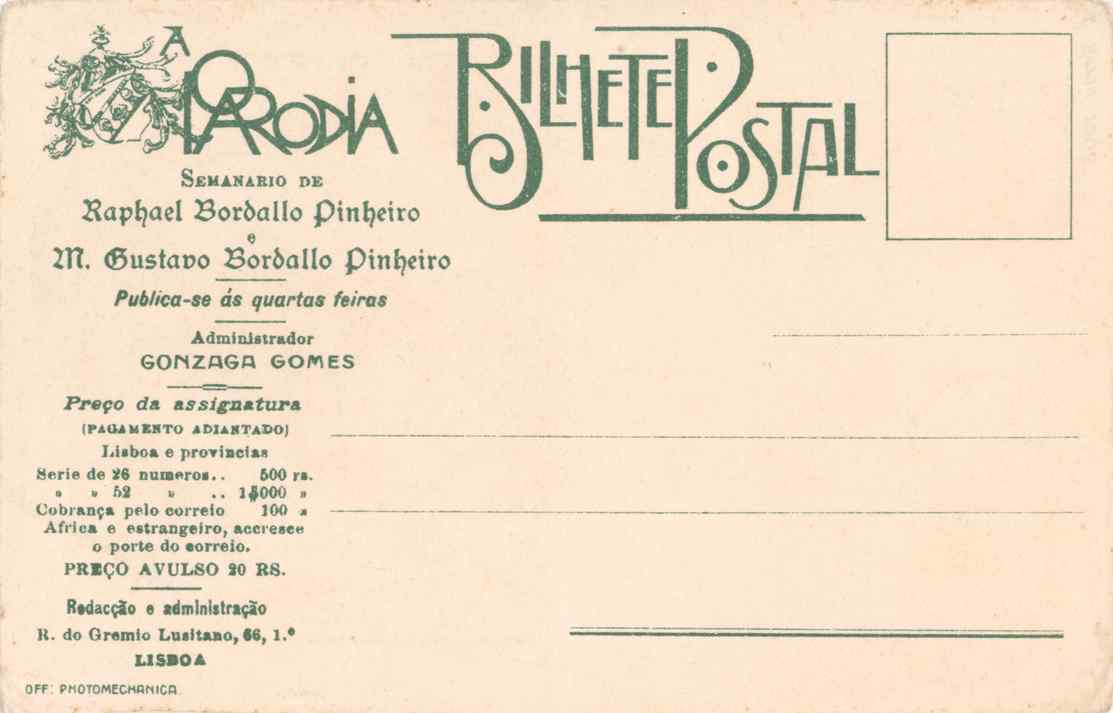 A PARODIA
BILHETE POSTAL
SEMANARIO DE
Raphael Bordallo Pinheiro
e
M. Gustavo Bordallo Pinheiro
Publica-se ás quartas feiras
Administrador
GONZAGA GOMES
Preço da assignatura
(PAGAMENTO ADIANTADO)
Lisboa e provincias
Serie de 26 numeros.. 500 rs.
» » 52 » .. 1$000 »
Cobrança pelo correio 100 »
Africa e estrangeiro, accresce
o porte do correio.
PREÇO AVULSO 20 RS.
Redacção e administração
R. do Gremio Lusitano, 66, 1.º
LISBOA
OFF: PHOTOMECHANICA.